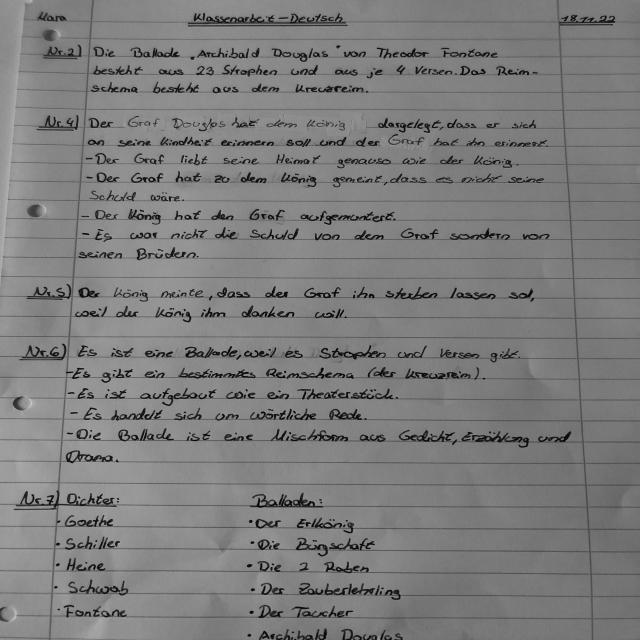 Klara Klassenarbeit – Deutsch 18.11.22
Nr.2) Die Ballade „Archibald Douglas" von Theodor Fontane
besteht aus 23 Strophen und aus je 4 Versen. Das Reim-
schema besteht aus dem Kreuzreim.
Nr.4) Der Graf Douglas hat dem König dargelegt, dass er sich
an seine Kindheit erinnern soll und der Graf hat ihn erinnert.
- Der Graf liebt seine Heimat genauso wie der König.
- Der Graf hat zu dem König gemeint, dass es nicht seine
Schuld wäre.
- Der König hat den Graf aufgemuntert.
- Es war nicht die Schuld von dem Graf sondern von
seinen Brüdern.
Nr.5) Der König meinte, dass der Graf ihn sterben lassen sol,
weil der König ihm danken will.
Nr.6) Es ist eine Ballade, weil es Strophen und Versen gibt.
- Es gibt ein bestimmtes Reimschema (der Kreuzreim).
- Es ist aufgebaut wie ein Theaterstück.
- Es handelt sich um wörtliche Rede.
- Die Ballade ist eine Mischform aus Gedicht, Erzählung und
Drama.
Nr.7) Dichter: Balladen:
· Goethe · Der Erlkönig
· Schiller · Die Bürgschaft
· Heine · Die 2 Raben
· Schwab · Der Zauberlehrling
· Fontane · Der Taucher
· Archibald Douglas